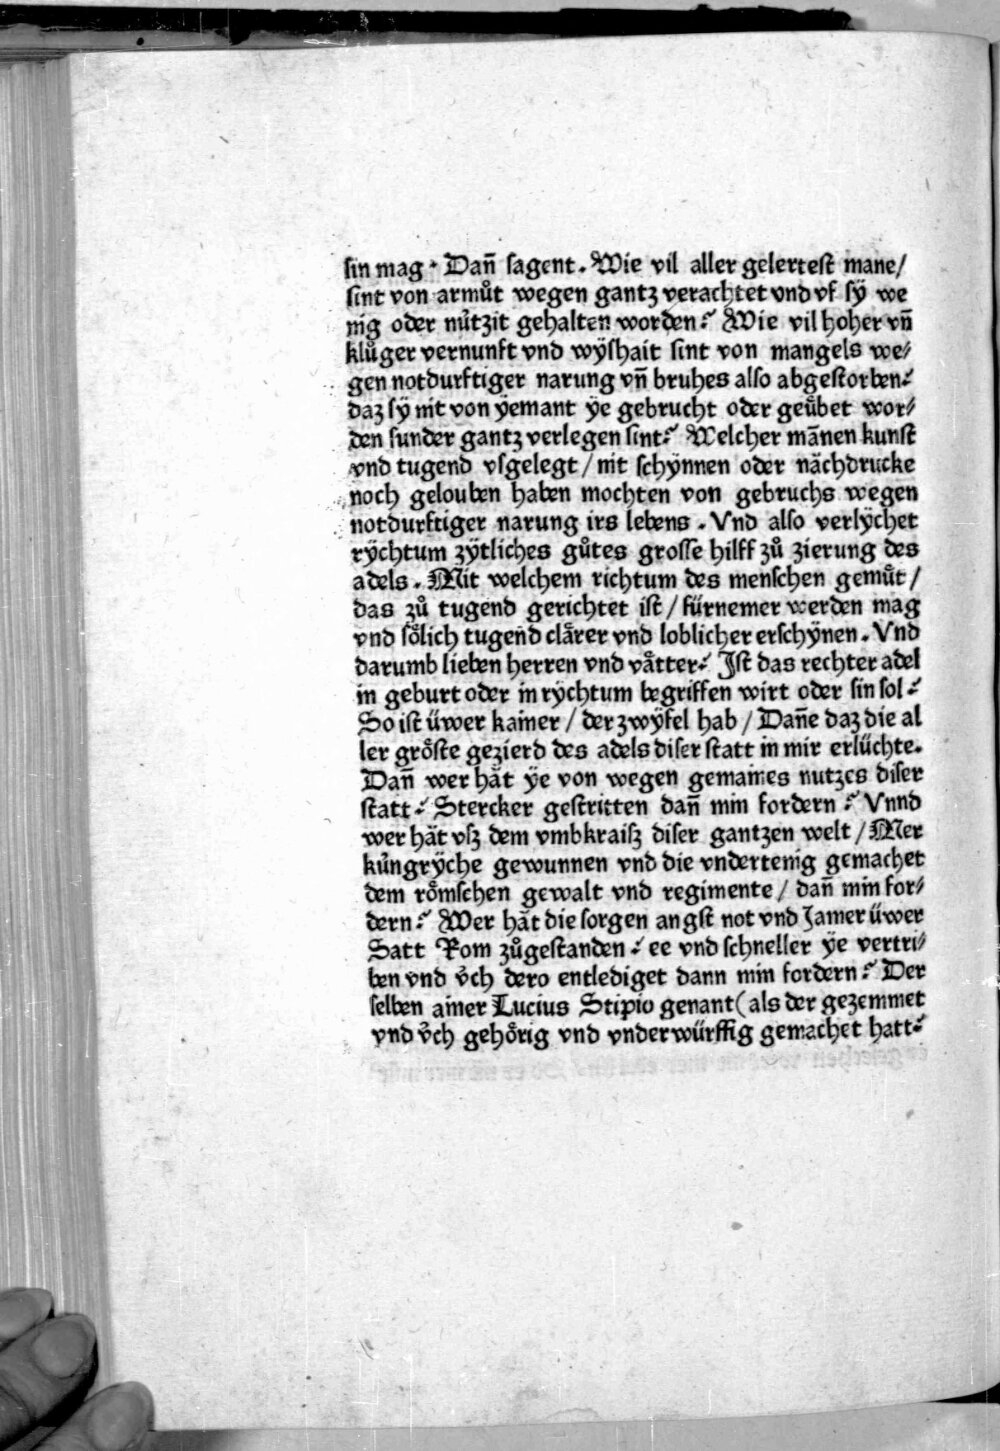 sin mag · Dañ sagent . Wie vil aller gelertest mane/
sint von armůt wegen gantz verachtet vnd vf sÿ we
nig oder nützit gehalten worden⸵ Wie vil hoher vñ
klůger vernunft vnd wÿshait sint von mangels we⸗
gen notdurftiger narung vñ bruhes also abgestorben⸵
daz sÿ nit von ÿemant ÿe gebrucht oder geůbet wor⸗
den sunder gantz verlegen sint⸵ Welcher mānen kunst
vnd tugend vsgelegt / nit schÿnnen oder nächdrucke
noch gelouben haben mochten von gebruchs wegen
notdurftiger narung irs lebens . Vnd also verlÿchet
rÿchtum zÿtliches gůtes grosse hilff zů zierung des
adels . Mit welchem richtum des menschen gemůt /
das zů tugend gerichtet ist / fürnemer werden mag
vnd soͤlich tugend claͤrer vnd loblicher erschÿnen . Vnd
darumb lieben herren vnd vaͤtter⸵ Jst das rechter adel
in geburt oder in rÿchtum begriffen wirt oder sin sol⸵
So ist üwer kainer / der zwÿfel hab / Dañe daz die al
ler groͤste gezierd des adels diser statt in mir erlüchte.
Dañ wer hät ÿe von wegen gemaines nutzes diser
statt⸵ Stercker gestritten dañ min fordern⸵ Vnnd
wer hät vsz dem vmbkraisz diser gantzen welt / Mer
küngrÿche gewunnen vnd die vndertenig gemachet
dem roͤmschen gewalt vnd regimente / dañ min for⸗
dern⸵ Wer hät die sorgen angst not vnd Jamer üwer
Satt Rom zůgestanden⸵ ee vnd schneller ÿe vertri⸗
ben vnd v̈ch dero entlediget dann min fordern⸵ Der
selben ainer Lucius Stipio genant (als der gezemmet
vnd v̈ch gehoͤrig vnd vnderwürffig gemachet hatt⸵